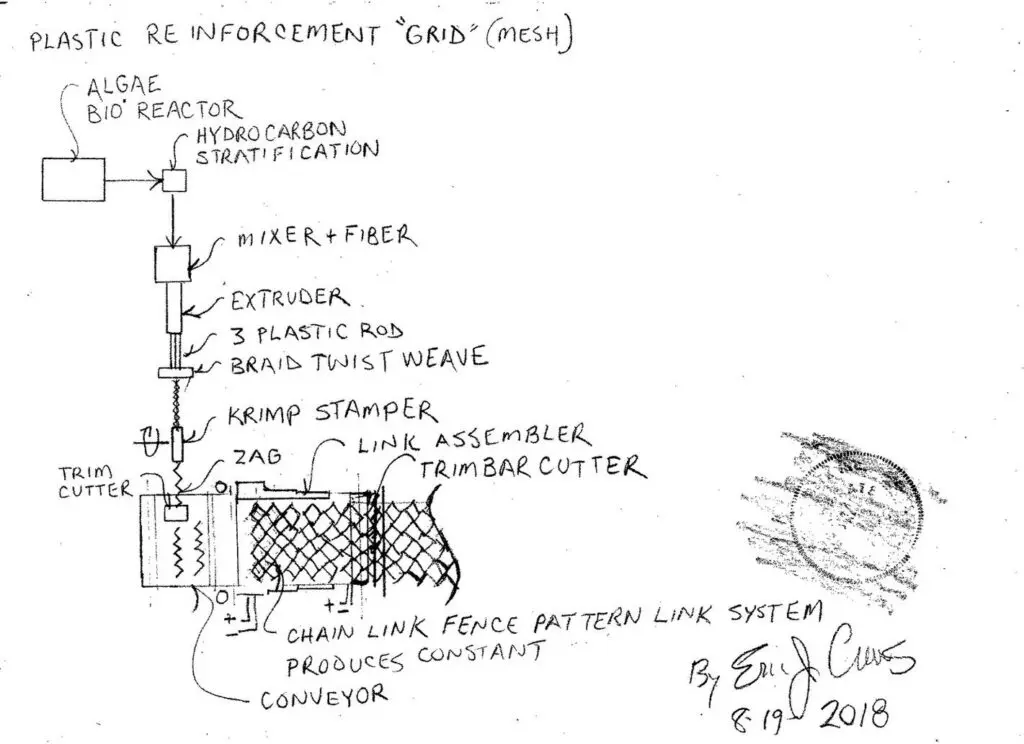 PLASTIC REINFORCEMENT "GRID" (MESH)
ALGAE
BIO REACTOR
HYDROCARBON
STRATIFICATION
MIXER + FIBER
EXTRUDER
3 PLASTIC ROD
BRAID TWIST WEAVE
KRIMP STAMPER
LINK ASSEMBLER
ZAG
TRIMBAR CUTTER
TRIM
CUTTER
+
-
+
-
CHAIN LINK FENCE PATTERN LINK SYSTEM
PRODUCES CONSTANT
CONVEYOR
By Eric J
8-19-2018